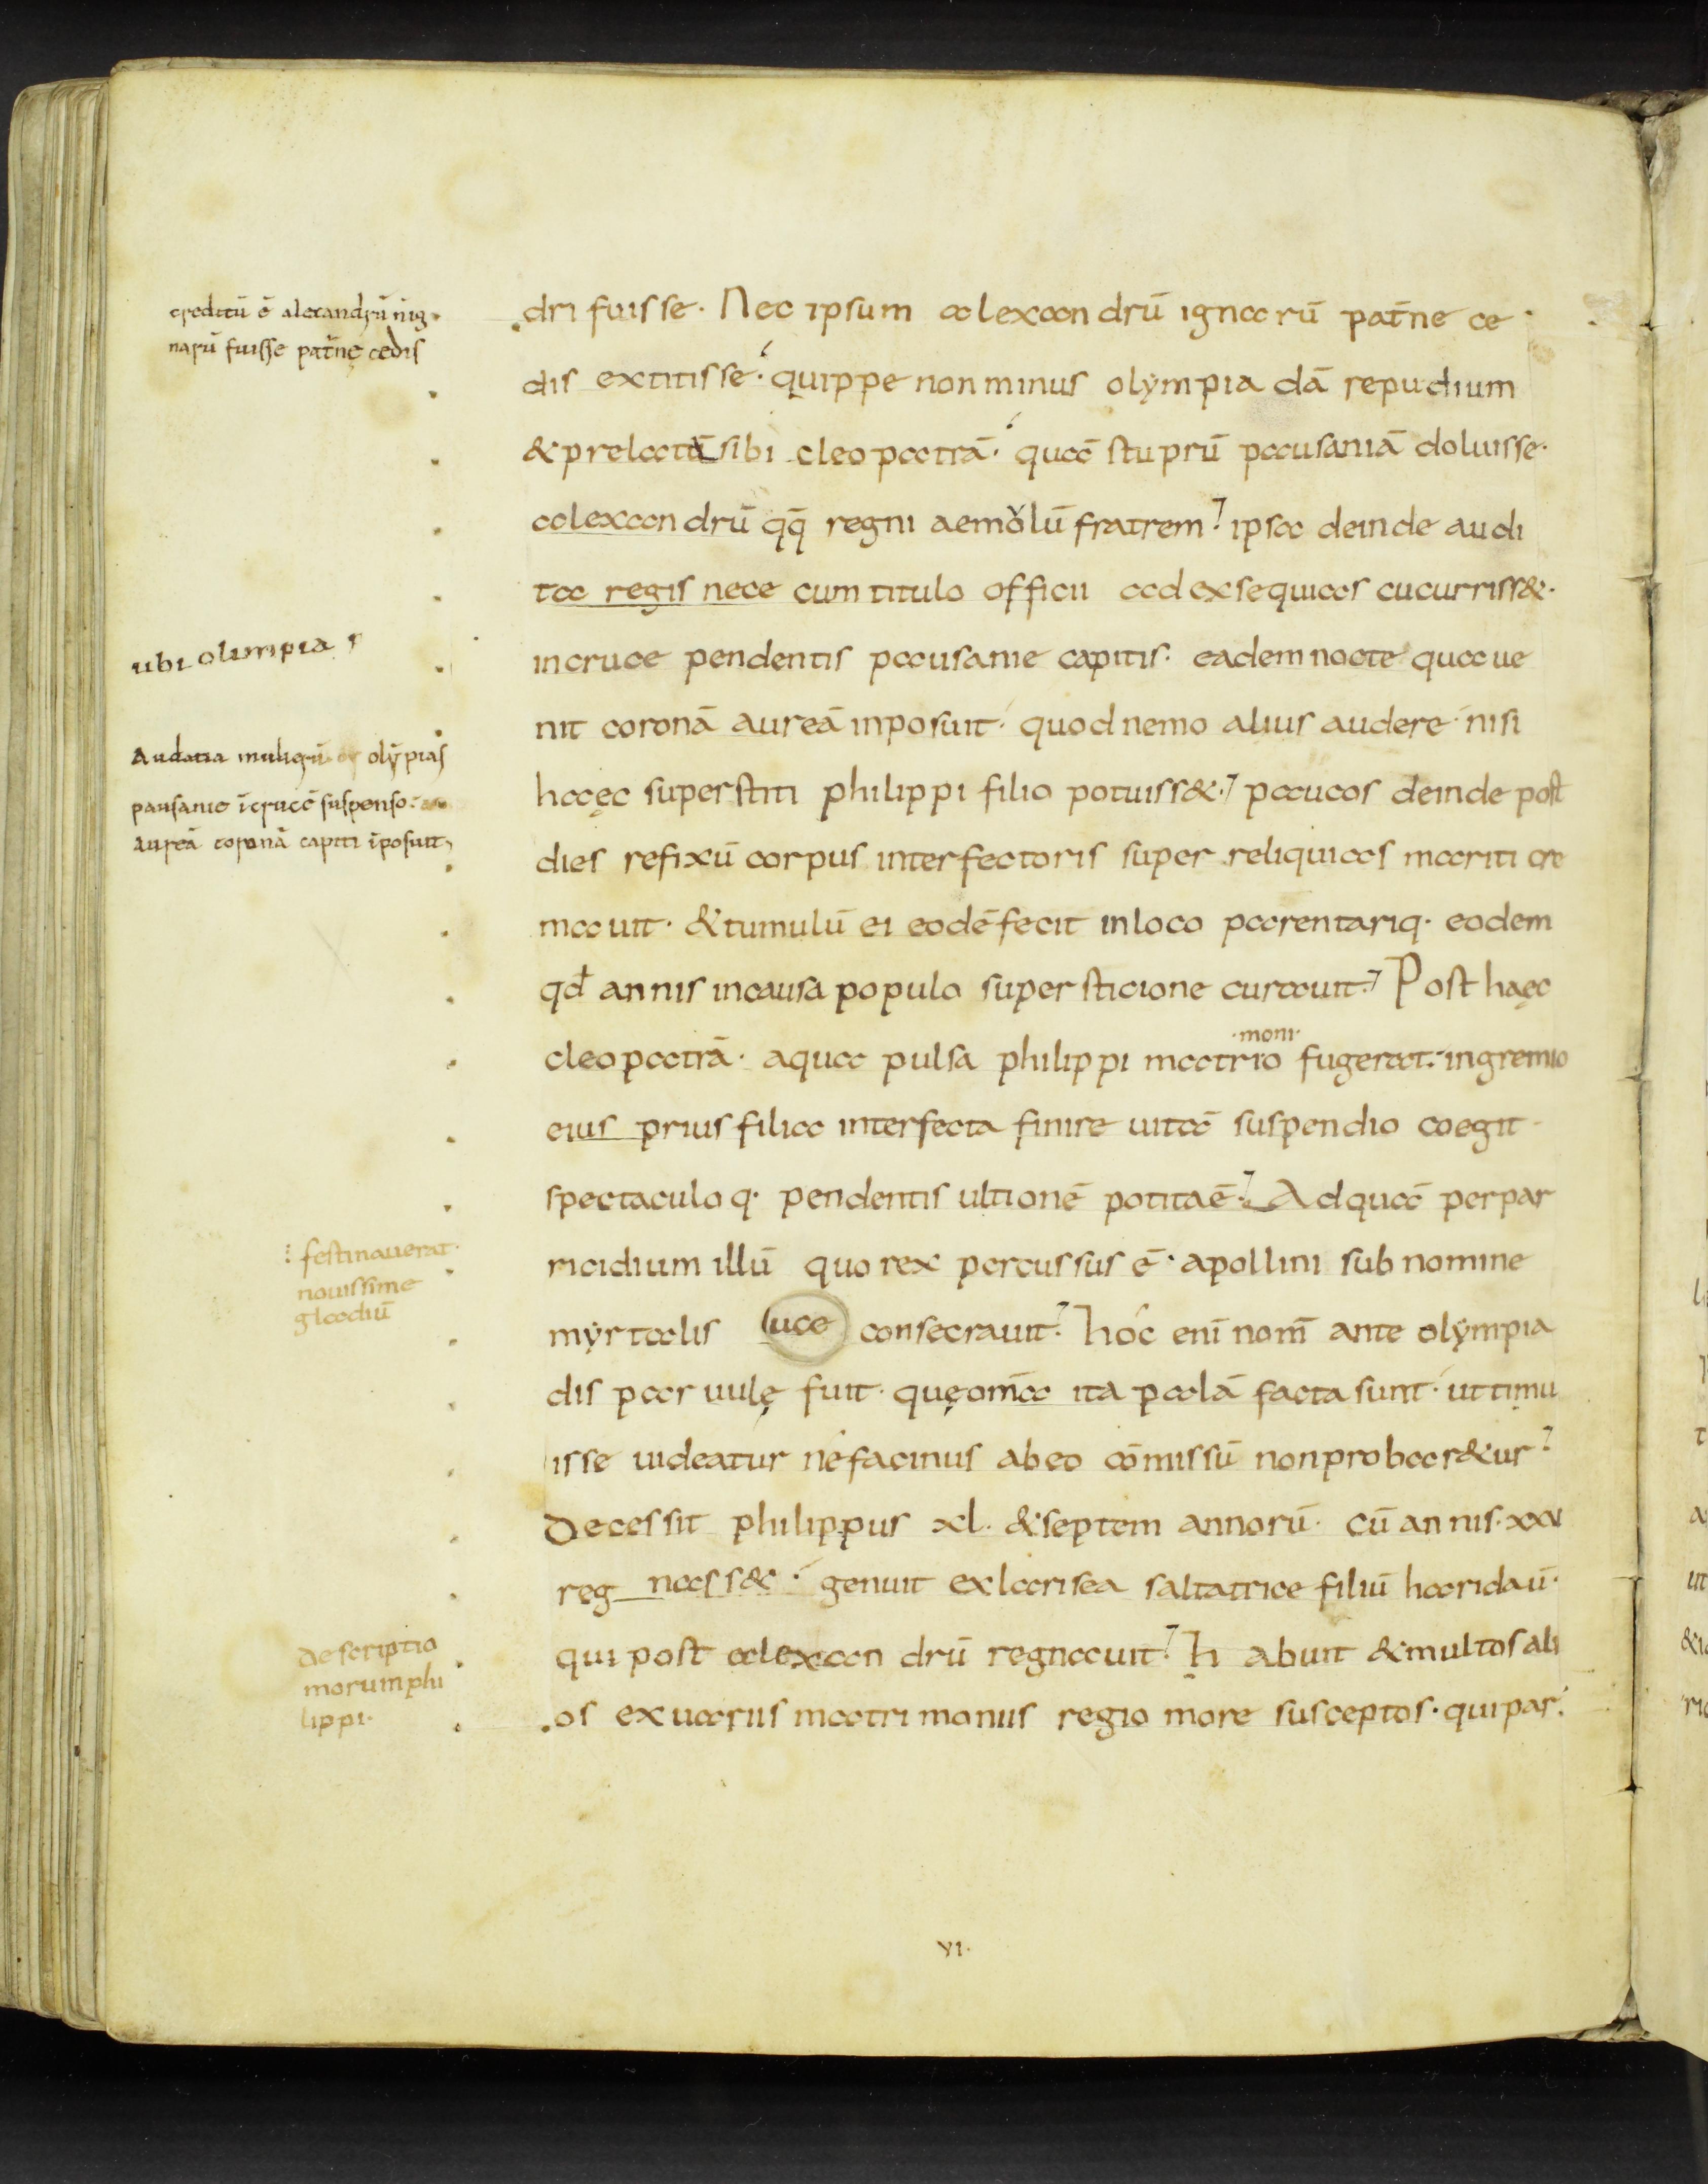 creditū ē alexandrū nig
narū fuisse pat̄nę cedis
ubi olimpia
Audatia muliерū olȳpias
pausanie ī cruce suspenso
aureā coronā capiti īposuit
: festinauerat
nouissime
gladiū
Descriptio
morum phi
lippi·
dri fuisse· Nec ipsum alexandrū ignarū pat̄ne ce
dis extitisse· quippe non minus olẏmpiadā repudium
& prelatā sibi cleopatrā· quā stuprū pausaniā doluisse·
alexandrū qq̄ regni aemolū fratrem? ipsa deinde audi
ta regis nece cum titulo officii ad exsequias cucurriss&·
in cruce pendentis pausanie capitis· eadem nocte qua ue
nit coronā aureā inposuit· quod nemo alius audere nisi
haęc superstiti philippi filio potuiss&· paucos deinde post
dies refixū corpus interfectoris super reliquias mariti cre
mauit· & tumulū ei eodē fecit in loco parentariq· eodem
qd annis incausa populo supersticione curauit· Post haęc
cleopatrā· aqua pulsa philippi matrio ·moni· fugerat· in gremio
eius prius filia interfecta finire uitā suspendio coegit·
spectaculoq· pendentis ultionē potita ē· Ad quā per par
ricidium illū quo rex percussus ē· apollini sub nomine
mẏrtalis luce consecrauit? hoc enī nom̄ ante olẏmpia
dis paruulę fuit· quęom̄a ita palā facta sunt· ut timu
isse uideatur ne facinus ab eo cōmissū non probar&ur?
Decessit philippus xl· & septem annorū· cū annis· xxv
reg nass&· genuit ex larisea saltatrice filiū haridaū·
qui post alexandrū regnauit? habuit & multos ali
os ex uariis matrimoniis regio more susceptos· qui par
vi·